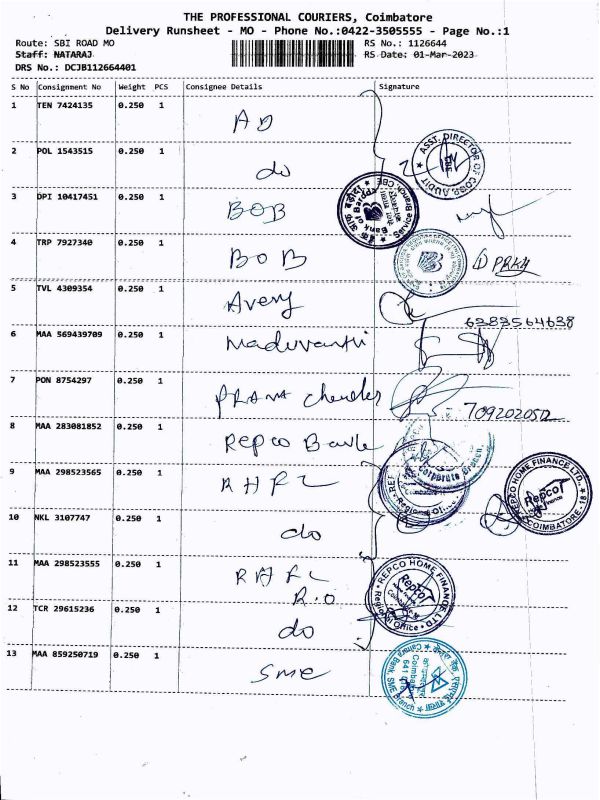 THE PROFESSIONAL COURIERS, Coimbatore
Delivery Runsheet - MO - Phone No.:0422-3505555 - Page No.:1
Route: SBI ROAD MO
RS No.: 1126644
Staff: NATARAJ
RS Date: 01-Mar-2023
DRS No.: DCJB112664401
S No Consignment No Weight PCS Consignee Details Signature
1 TEN 7424135 0.250 1 AD
ASST. DIRECTOR OF COOP. AUDIT
2 POL 1543515 0.250 1 do
3 DPI 10417451 0.250 1 BOB
Bank of Baroda
Service Branch, CBE
4 TRP 7927340 0.250 1 BOB
5 TVL 4309354 0.250 1 Avery
6282564638
6 MAA 569439709 0.250 1 Maduvanthi
7 PON 8754297 0.250 1 PRANA Chendler
709202051
8 MAA 283081852 0.250 1 Repco Bank
Corporate Branch
9 MAA 298523565 0.250 1 RHFL
REPCO HOME FINANCE LTD.,
Repco
COIMBATORE
10 NKL 3107747 0.250 1 do
11 MAA 298523555 0.250 1 RHFL
R.O
REPCO HOME FINANCE LTD.
Repco
Regional Office
12 TCR 29615236 0.250 1 do
13 MAA 859250719 0.250 1 SME
Canara Bank, SME Branch
Coimbatore
641